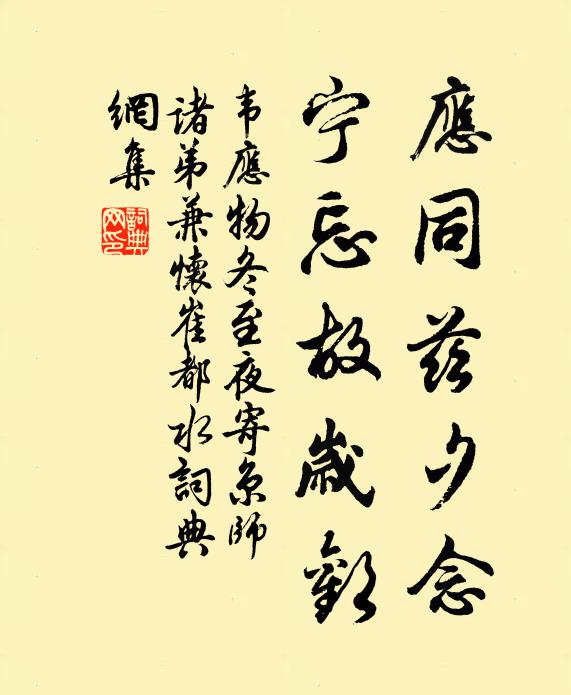 應同茲夕念
宁忘故歲歡
韦應物冬至夜寄京師
諸弟兼懷崔都水詞典
網集
詞典
网印